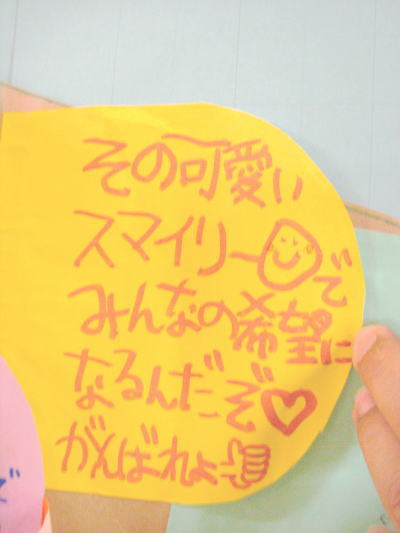 その可愛い
スマイリーで
みんなの希望に
なるんだぞ♡
がんばれよ